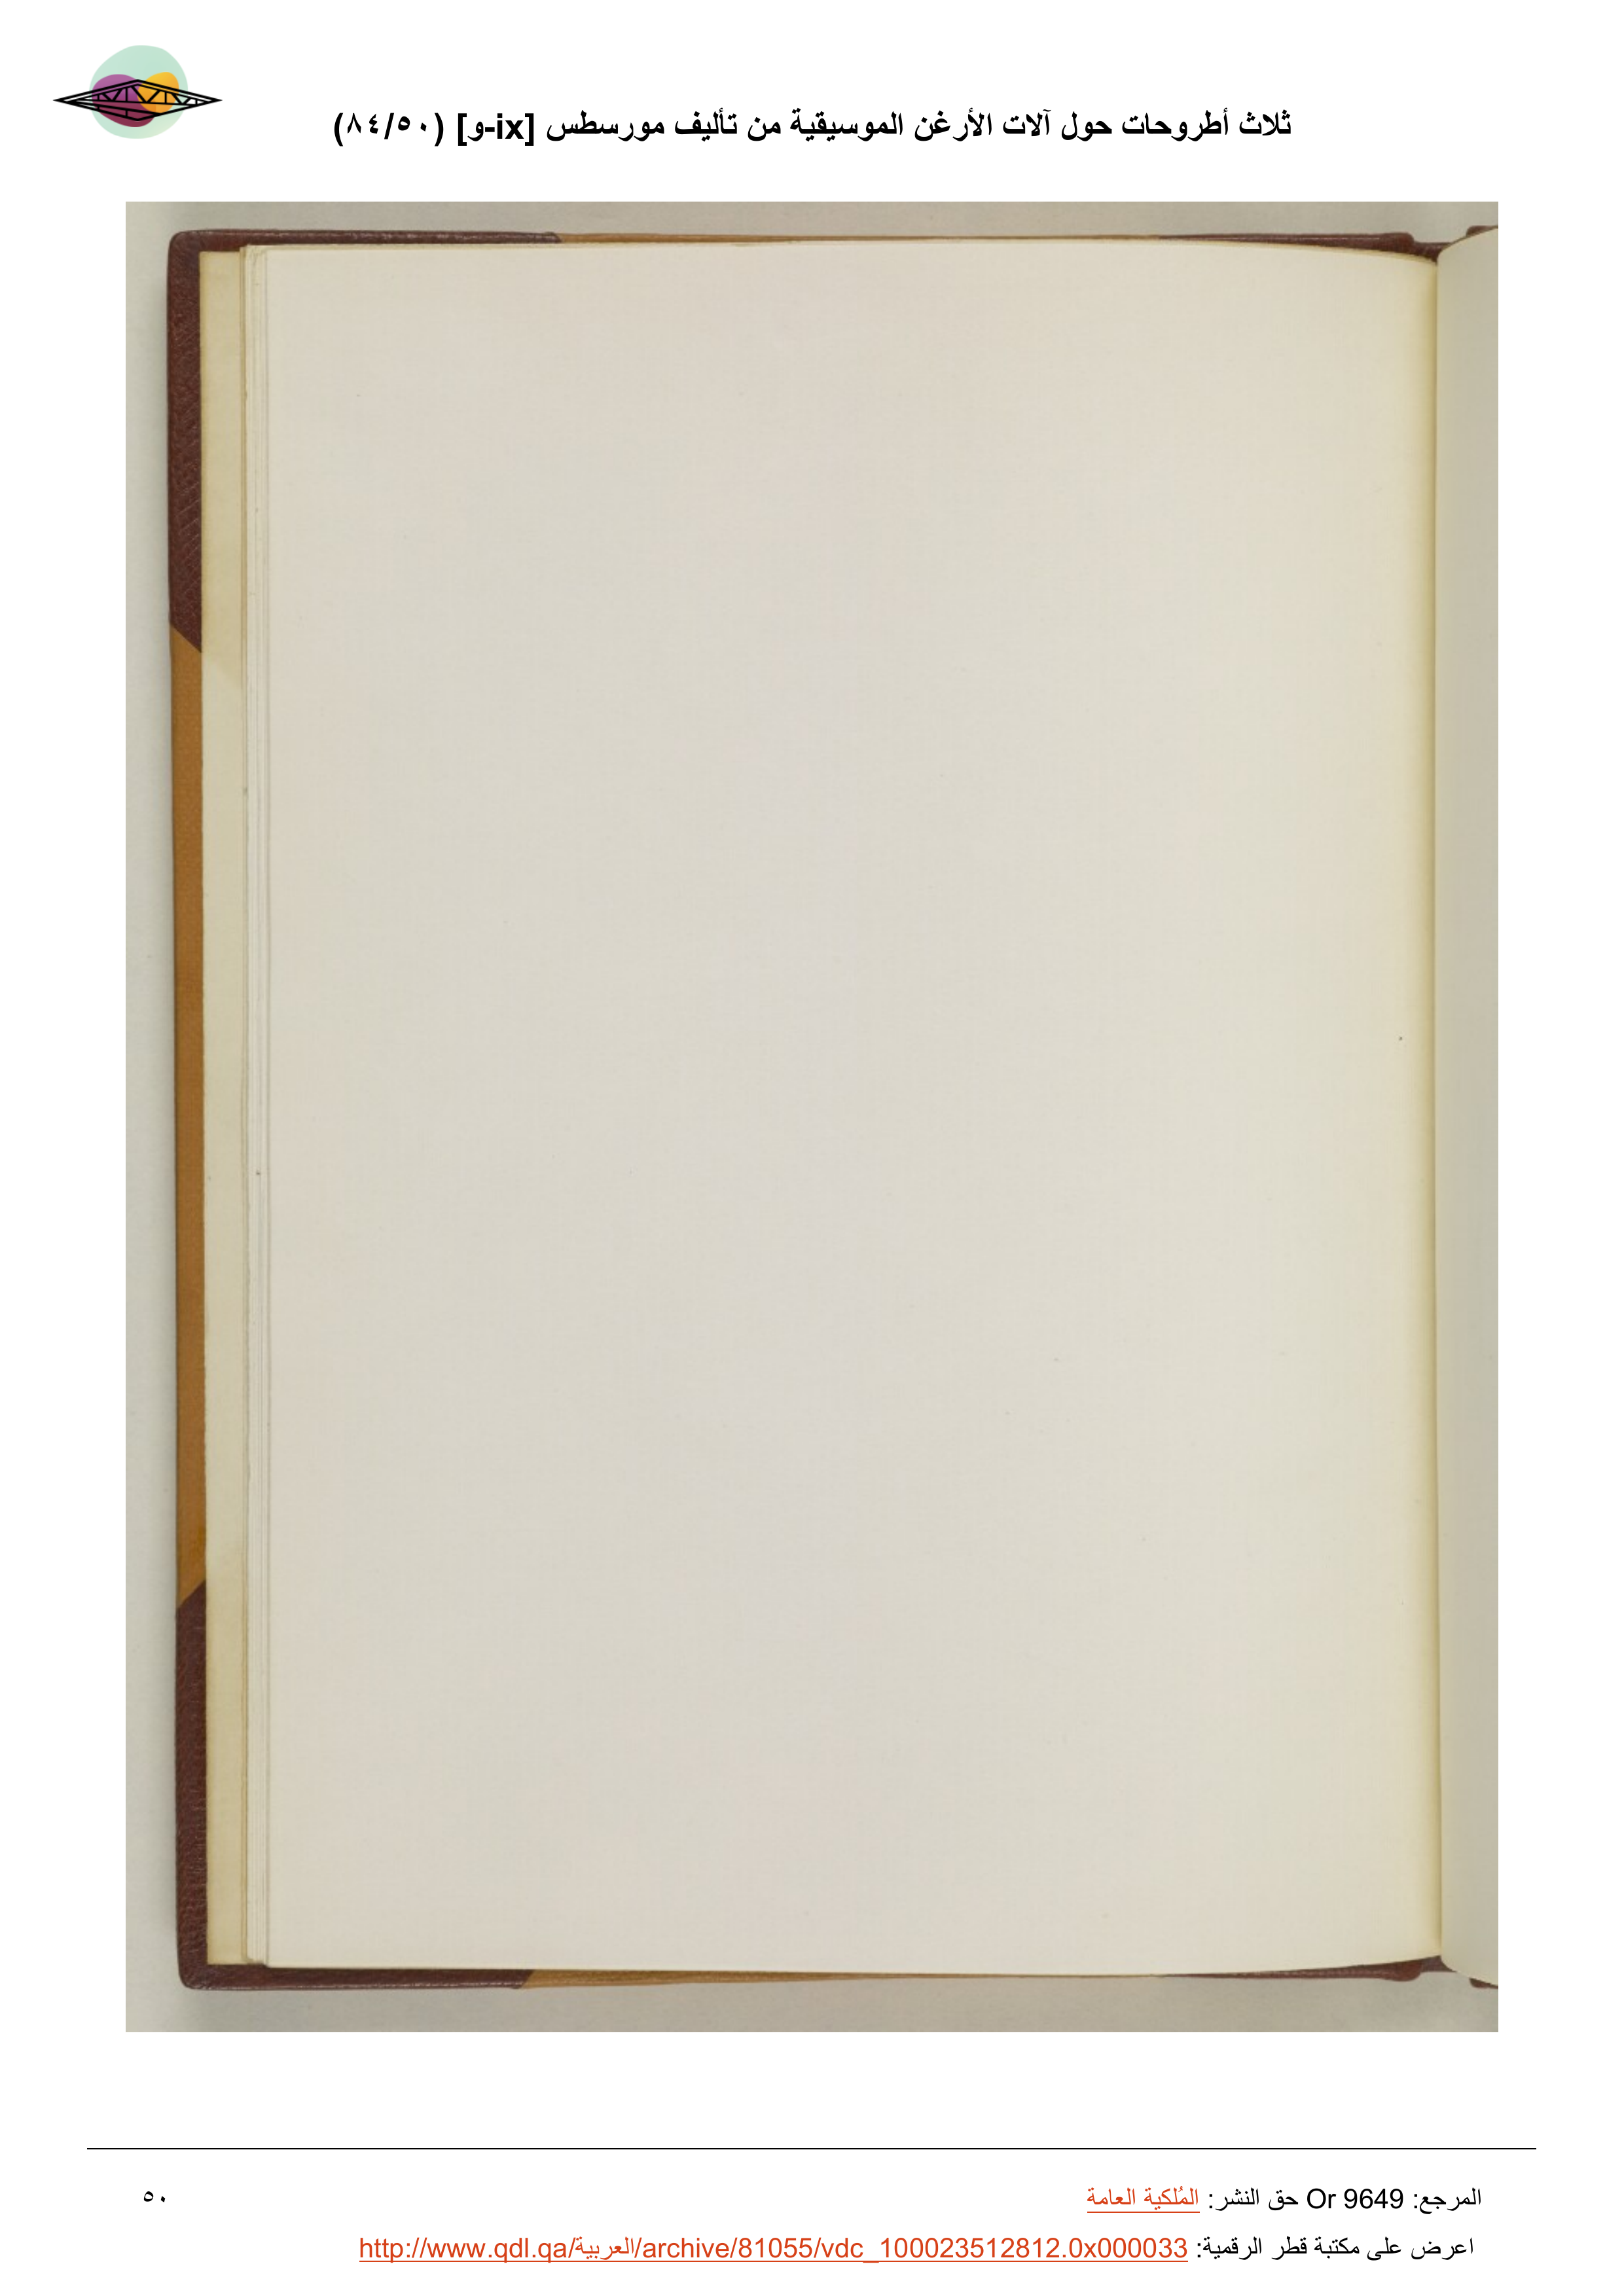 ثلاث أطروحات حول آلات الأرغن الموسيقية من تأليف مورسطس [ix-و] (٨٤/٥٠)
المرجع: Or 9649 حق النشر: المُلكية العامة
٥٠
اعرض على مكتبة قطر الرقمية: http://www.qdl.qa/العربية/archive/81055/vdc_100023512812.0x000033